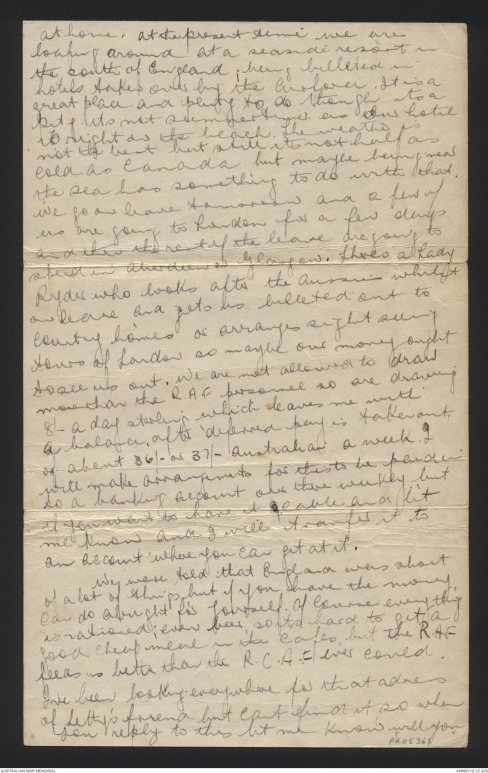 at home. At the present time we are
loafing around at a seaside resort in
the south of England, being billeted in
hotels taken over by the Airforce. It is a
great place and plenty to do though its a
pity its not summertime as our hotel
is right on the beach. The weather is
not the best but still its not half as
cold as Canada but maybe being near
the sea has something to do with that.
We go on leave tomorrow and a few of
us are going to London for a few days
and then the rest of the leave are going to
spend in Aberdeen or Glasgow. Theres a Lady
Ryder who looks after the Aussies whilst
on leave and gets us billeted out to
country homes or arranges sight seeing
tours of London so maybe our money ought
to see us out. We are not allowed to draw
more than the RAF personel so are drawing
8/- a day sterling which leaves me with
a balance, after deferred pay is taken out,
of about 36/- or 37/- Australian a week. I
will make arrangements for this to be paid in
to a banking account over there weekly but
if you want to have it cable and let
me know and I will transfer it to
an account where you can get at it.
We were told that England was short
of a lot of things but if you have the money
can do alright for yourself. Of course everything
is rationed, even beer, so its hard to get a
good cheap meal in the cafes, but the RAF
feeds us better than the R.C.A.F. ever could.
I've been looking everywhere for that address
of Letty's friend but can't find it so when
you reply to this let me know will you
PR05361
AUSTRALIAN WAR MEMORIAL